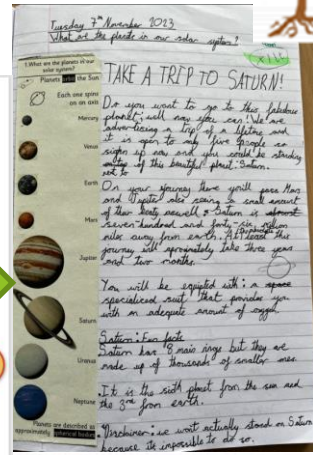 Tuesday 7th November 2023
What are the planets in our solar system?
1.What are the planets in our solar system?
Planets orbit the Sun
Each one spins on an axis
Mercury
Venus
Earth
Mars
Jupiter
Saturn
Uranus
Neptune
Planets are described as approximately spherical bodies
TAKE A TRIP TO SATURN!
Do you want to go to this fabulous
planet; well now you can! We are
advertising a trip of a lifetime and
it is open to only five people so
sign up now and you could be standing
next to this beautiful planet: Saturn.
On your journey there you'll pass Mars
and Jupiter also seeing a small amount
of their beauty aswell. Saturn is almost
seven hundred and forty-six million
miles away from earth. At least this
journey will aproximately take three years
and two months.
You will be equipted with: a space
specialised suit that provides you
with an adequate amount of oxygen.
Saturn: Fun facts
Saturn has 8 main rings but they are
made up of thousands of smaller ones.
It is the sixth planet from the sun and
the 3rd from earth.
Disclaimer: we won't actually stand on Saturn
because its impossible to do so.